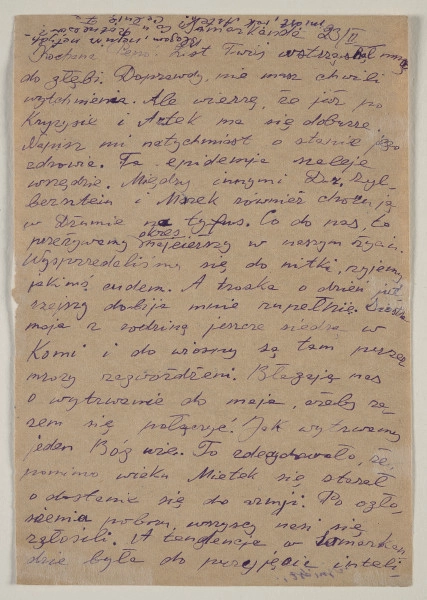 Samarkanda 23/II
Kochana Reno. List Twój wstrząsnął mną
do głębi. Doprawdy, nie masz chwili
wytchnienia. Ale wierzę, że już po
Kryzysie i Artek ma się dobrze.
Napisz mi natychmiast o stanie jego
zdrowia. Ta epidemja szaleje
wszędzie. Między innymi Dr. Zyl-
bersztein i Marek również chorują
w Dżumie na tyfus. Co do nas, to
przeżywamy okres najcięższy w naszym życiu.
Wysprzedaliśmy się do nitki, żyjemy
jakimś cudem. A troska o dzień
dobija mnie zupełnie. Siostra
moja z rodziną jeszcze siedzą w
Komi i do wiosny są tam przez
mrozy zagwożdżeni. Błagają nas
o wytrwanie do maja, ażeby ra-
zem się połączyć. Jak wytrwamy
jeden Bóg wie. To zdecydowało, że,
pomimo wieku Mietek się starał
o dostanie się do armji. Po ogło-
szeniu poboru, wszyscy nasi się
zgłosili. A tendencja w Samarkan
dzie była do przyjęcia inteli-